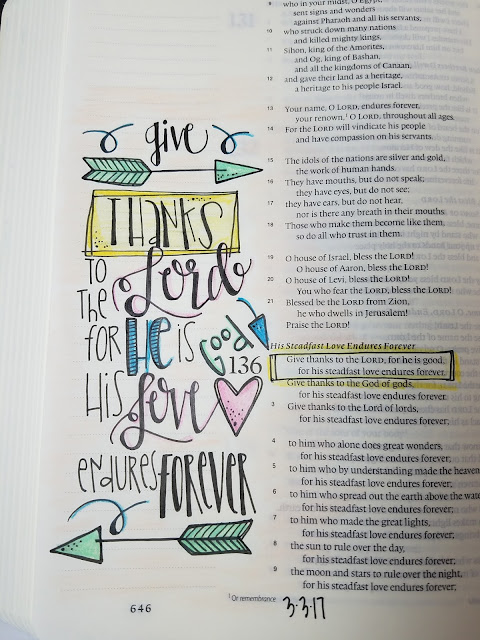 131
give
THANKS
TO
The
Lord
for HE is
Good
His
Love
endures FOREVER
646
who in your midst, O Egypt,
sent signs and wonders
against Pharaoh and all his servants,
10 who struck down many nations
and killed mighty kings,
11 Sihon, king of the Amorites,
and Og, king of Bashan,
and all the kingdoms of Canaan,
12 and gave their land as a heritage,
a heritage to his people Israel.
13 Your name, O LORD, endures forever,
your renown,¹ O LORD, throughout all ages.
14 For the LORD will vindicate his people
and have compassion on his servants.
15 The idols of the nations are silver and gold,
the work of human hands.
16 They have mouths, but do not speak;
they have eyes, but do not see;
17 they have ears, but do not hear,
nor is there any breath in their mouths.
18 Those who make them become like them,
so do all who trust in them.
19 O house of Israel, bless the LORD!
O house of Aaron, bless the LORD!
20 O house of Levi, bless the LORD!
You who fear the LORD, bless the LORD!
21 Blessed be the LORD from Zion,
he who dwells in Jerusalem!
Praise the LORD!
His Steadfast Love Endures Forever
136 Give thanks to the LORD, for he is good,
for his steadfast love endures forever.
Give thanks to the God of gods,
for his steadfast love endures forever.
3 Give thanks to the Lord of lords,
for his steadfast love endures forever;
4 to him who alone does great wonders,
for his steadfast love endures forever;
5 to him who by understanding made the heaven
for his steadfast love endures forever;
6 to him who spread out the earth above the wat
for his steadfast love endures forever;
7 to him who made the great lights,
for his steadfast love endures forever;
8 the sun to rule over the day,
for his steadfast love endures forever;
9 the moon and stars to rule over the night,
for his steadfast love endures forever;
¹ Or remembrance
3.3.17